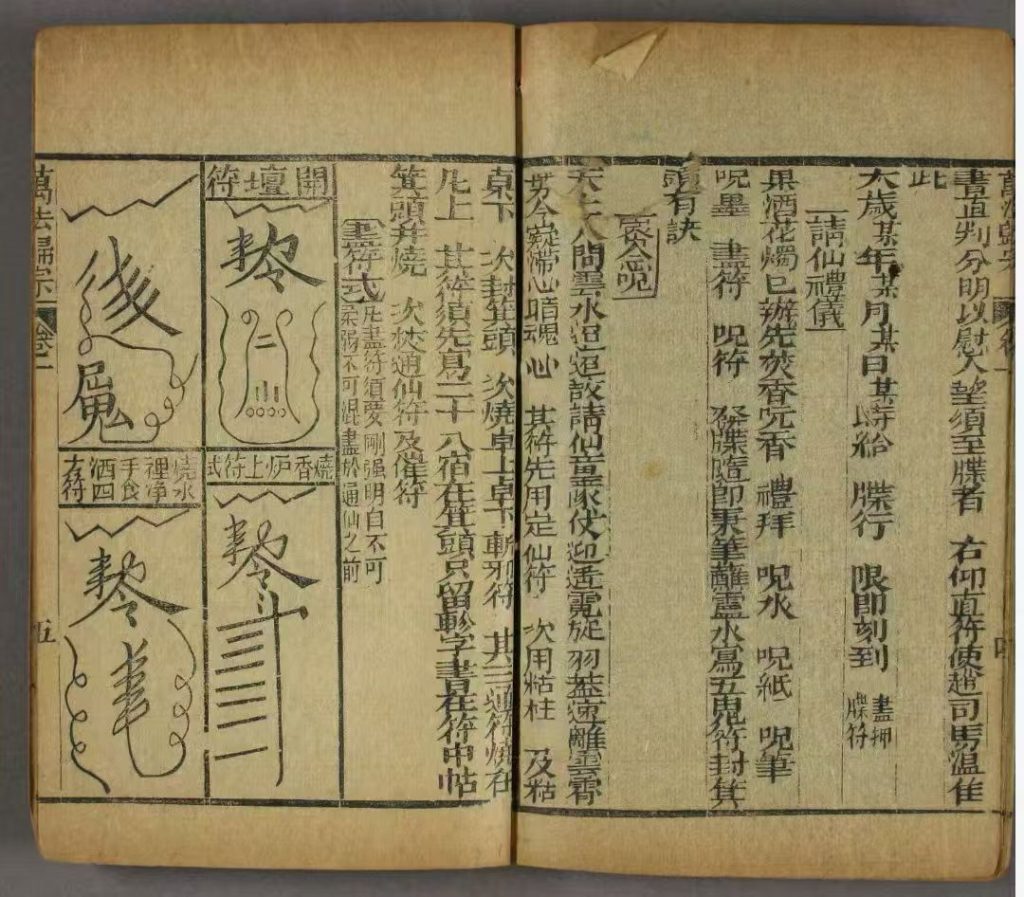 書直判分明以慰人望須至牒者 右仰直符使趙司馬溫隹
此
太歲某年某月某日某時給 牒行 限即刻到 畫押牒符
請仙禮儀
果酒花燭已辦先焚香咒香 禮拜 呪水 呪紙 呪筆
呪墨 畫符 呪符 發牒隨即秉筆蘸靈水寫五鬼符封箕
頭有訣
天上人間雲水迢迢故請仙童隊仗迎逢霓旌羽蓋遠離雲霄
其符先用定仙符 次用粘柱 及粘
桌下 次封箕頭 次燒卓上卓下斬邪符 其三通符燒在
爐上 其符須先寫二十八宿在箕頭只留軫字書在符中帖
箕頭并燒 次焚通仙符及催符
畫符式
凡畫符須要剛强明白不可
柔弱不可混畫於通仙之前
開壇符
燒香炉上符式
燒水裡淨手食洒四方符
萬法歸宗 卷一 五